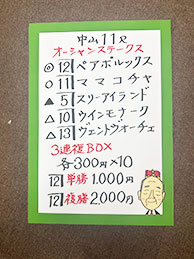 中山11R
オーシャンステークス
◎ 12 ペアポルックス
○ 11 ママコチャ
▲ 5 スリーアイランド
△ 10 ウインモナーク
△ 13 ヴェントヴォーチェ
3連複BOX
各300円×10
12 単勝 1,000円
12 複勝 2,000円